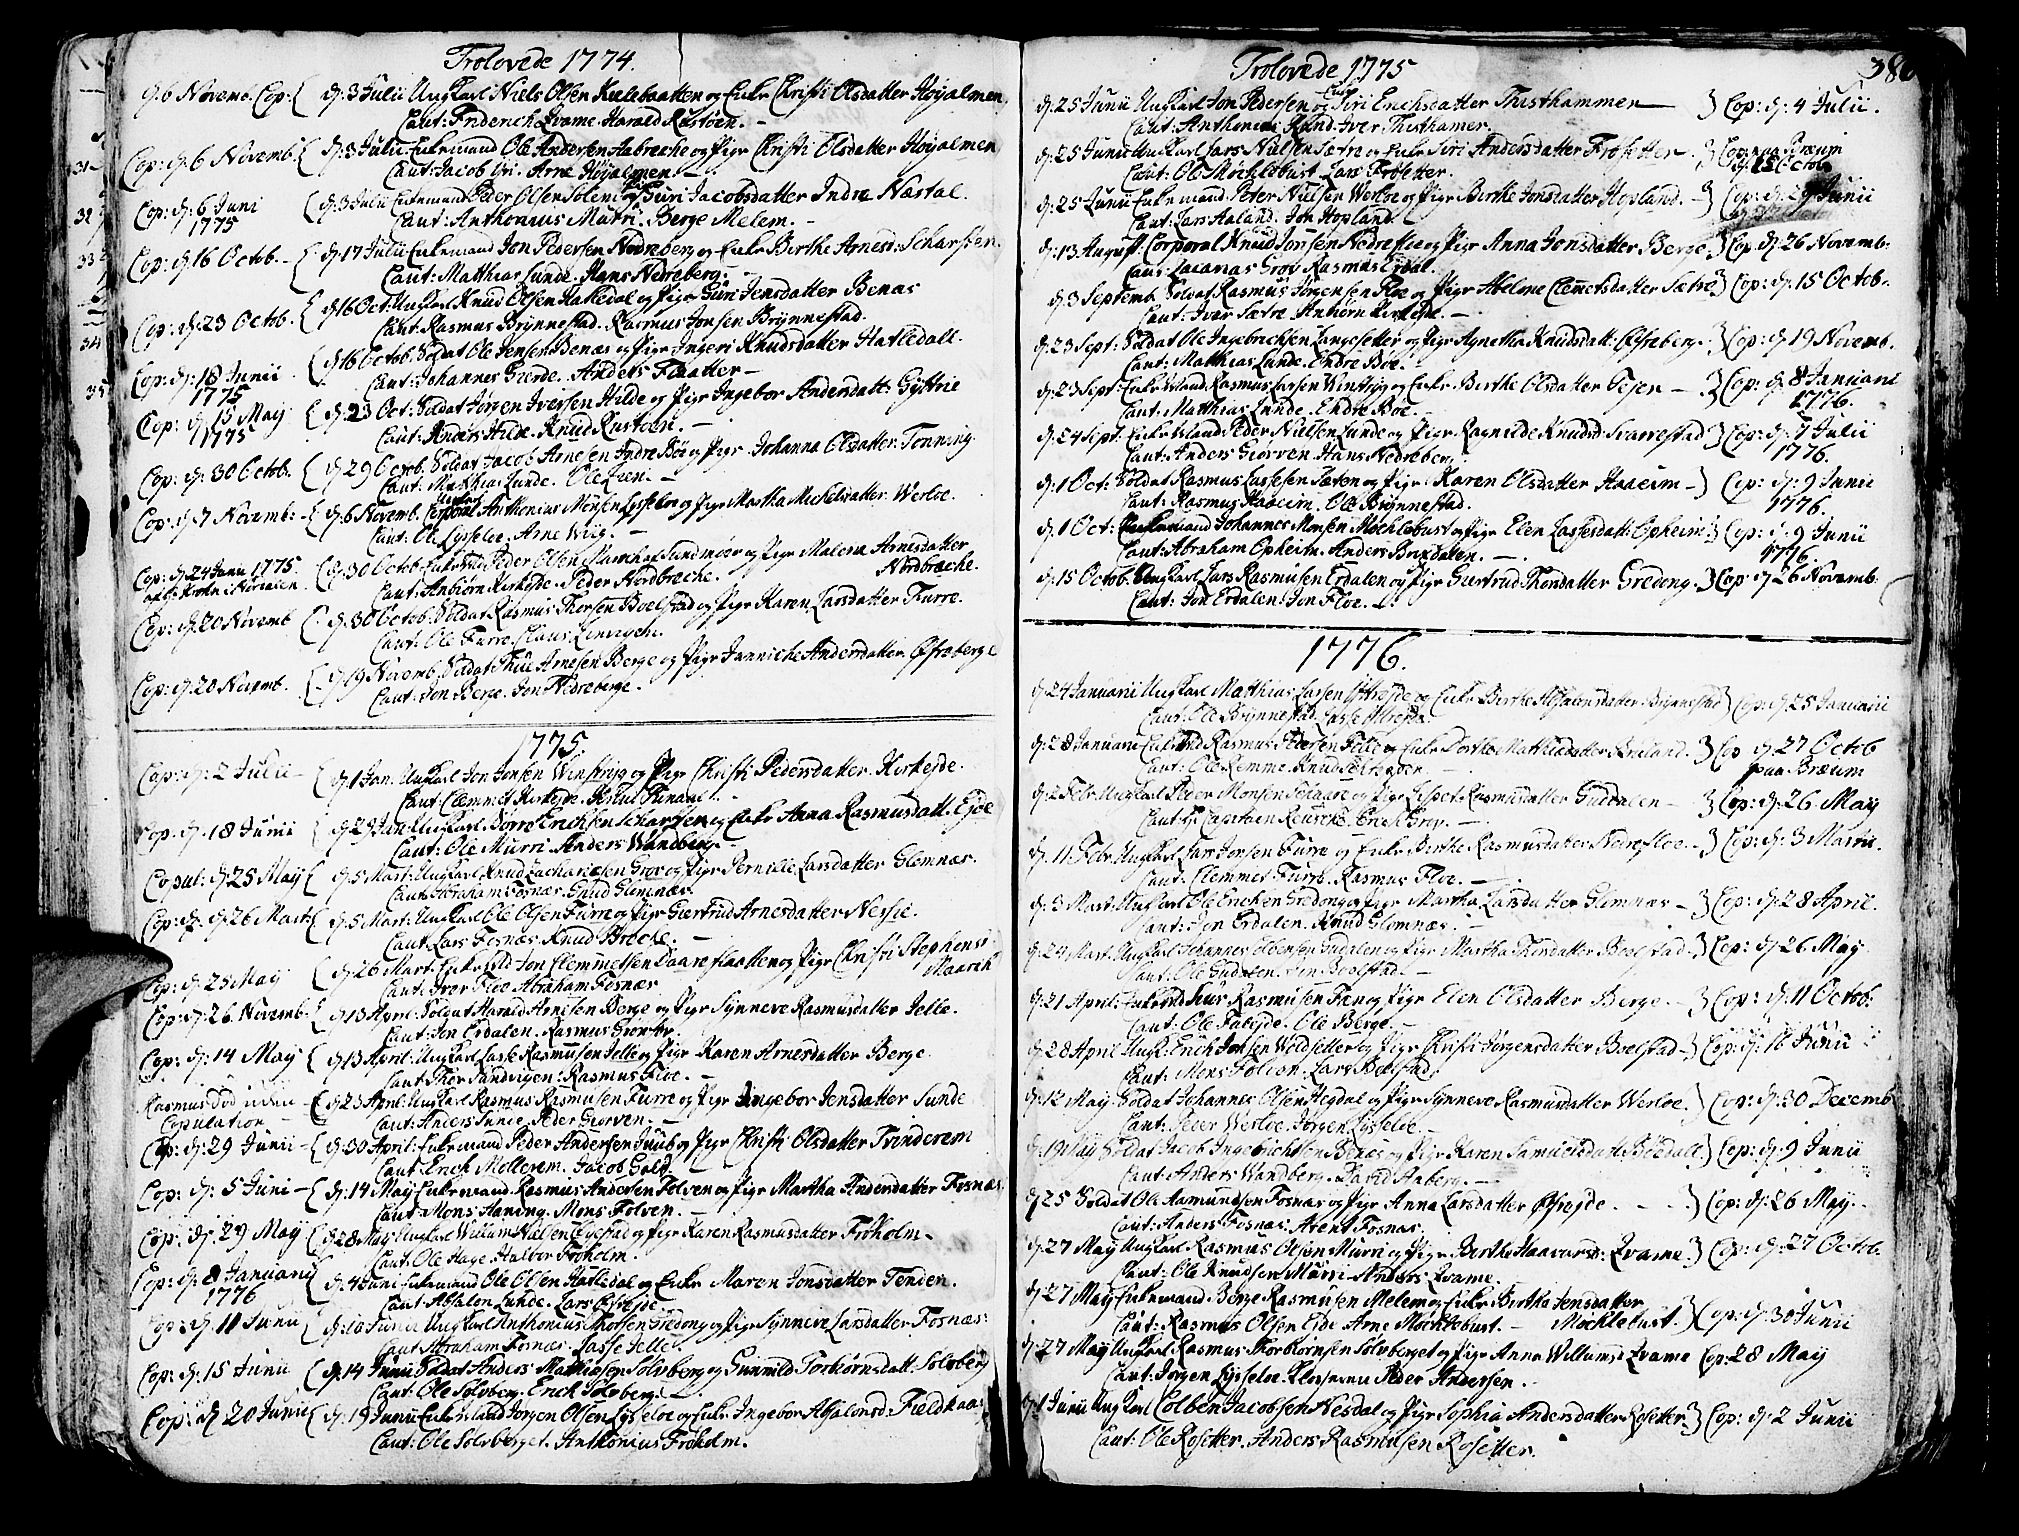 Trolovede 1774.
d. 6 Novemb. Cop: { d. 3 Julii Ungkarl Niels Olsen og Enke Christi Olsdatter Höyalmen
Caut: Friderich Qvame. Harald Rustöen.
Cop: d. 6 Novemb: { d. 3 Julii Enkemand Ole Andersen Aabreche og Pige Christi Olsdatter Höyalmen
Caut: Jacob Yri. Arne Höyalmen
Cop: d. 6 Juni { d. 3 Julii Enkemand Peder Olsen Solem og Guri Jacobsdatter Indre Næstal.
1775 Caut: Anthonius Murri. Berge Melem.
Cop: d. 16 Octob. { d. 17 Julii Enkemand Jon Pedersen og Enke Berthe Arnesd: Scharsten
Caut: Matthias Lunde. Hans Nedreberg.
Cop: d. 23 Octob. { d. 16 Oct: Ungkarl Knud Olsen Hatledal og Pige Guri Jensdatter Benæs
Caut: Rasmus Brynnestad. Rasmus Jonsen Brynnestad.
Cop: d. 18 Junii { d. 16 Octob. Soldat Ole Jensen Benæs og Pige Ingeri Knudsdatter Hatledall.
1775 Caut: Johannes Gierde. Anders
Cop: d. 15 May { d. 23 Oct: Soldat Jörgen Iversen Hilde og Pige Ingebor Andersdatt:
1775 Caut: Anders Hilde. Knud Rustöen.
Cop: d. 30 Octob. { d. 29 Octob. Soldat Jacob Arnesen Indre Böe og Pige Johanna Olsdatter Tonning.
Caut: Matthias Lunde. Ole
Cop: d. 7 Novemb: { d. 6 Novemb. Anthonius Monsen Lysseloe og Pige Martha Michelsdatter Werloe.
Caut: Ole Lysseloe. Arne Wiig.
Cop: d. 24 Janu 1775. { d. 30 Octob. Peder Olsen Sundmöer og Pige Malena Arnesdatter
Caut: Anbiörn Kirkeyde. Peder Nordbreche. Nordbreche.
Cop: d. 20 Novemb { d. 30 Octob: Soldat Rasmus Thorsen Boelstad og Pige Karen Larsdatter Furre.
Caut: Ole Furre. Claus
Cop: d. 20 Novemb. { d. 19 Novemb. Soldat Arnesen Berge og Pige Janniche Andersdatter Öfreberge
Caut: Jon Berge. Jon Nedreberge.
1775.
Cop: d. 2 Julii { d. 1 Jan: Ungkarl Jon Jonsen og Pige Christi Pedersdatter Kirkeyde.
Caut: Clemmet Kirkeyde.
Cop: d. 18 Junii { d. 29 Jan: Ungkarl Erichsen Scharsten og Enke Anna Rasmusdatt:
Caut: Ole Murri. Anders Wandberg.
Copul: d. 25 May { d. 5 Mart: Ungkarl Knud Zachariesen Grov og Pige Pernille Larsdatter Glemnæs.
Caut: Abraham Fosnæs. Knud Glemnæs.
Cop: d. 26 Mart: { d. 5 Mart: Ungkarl Ole Olsen Furre og Pige Giertrud Arnesdatter
Caut: Lars Fosnæs. Knud Breche.
Cop: d. 25 May { d. 26 Mart: Jon Clemmetsen og Pige Christi Stephensd:
Caut: Iver Floe. Abraham Fosnæs.
Cop: d. 26 Novemb { d. 13 April: Soldat Harald Arnesen Berge og Pige Synneve Rasmusdatter Jelle.
Caut: Jon Erdalen. Rasmus
Cop: d. 14 May { d. 13 April: Ungkarl Lasse Rasmussen Jelle og Pige Karen Arnesdatter Berge
Caut: Thor Sandvigen: Rasmus Floe.
Rasmus död uden { d. 23 April: Ungkarl Rasmus Rasmussen Furre og Pige Ingebor Jensdatter Sunde
Copulation Caut: Anders Sunde. Peder Giorven.
Cop: d. 29 Junii { d. 30 April: Enkemand Peder Andersen og Pige Christi Olsdatter Trinderem
Caut: Erich Mellerem. Jacob
Cop: d. 5 Juni { d. 14 May Enkemand Rasmus Andersen Folven og Pige Martha Andersdatter Fosnæs
Caut: Mons Haning. Mons Folven.
Cop: d. 29 May { d. 28 May Ungkarl Willum Nielsen og Pige Karen Rasmusdatter Fröholm
Caut: Ole Hage. Halbor Fröholm.
Cop: d. 8 Januarii { d. 4 Juni Enkemand Ole Olsen Hatledal og Enke Maren Jonsdatter Tenden.
1776 Caut: Absalon Lunde. Lars
Cop: d. 11 Junii { d. 10 Junii Ungkarl Anthonius Thorsen Gredong og Pige Synneve Larsdatter Fosnæs:
Caut: Abraham Fosnæs. Lasse Jelle.
Cop: d. 15 Junii { d. 14 Junii Soldat Anders Mathiasen Solvberg og Gunnild Torkörnsdatt. Solvberg
Caut: Ole Solvberg. Erich Solvberg.
Cop: d. 20 Junii { d. 19 Junii Jörgen Olsen Lysseloe og Enke Ingebor Absalonsd:
Caut: Ole Solvberget. Anthonius Fröholm.
Trolovede 1775
386
d. 25 Junii Ungkarl Jon Pedersen og Siri Erichsdatter Thisthammer } Cop: d. 4 Julii.
Caut: Anthonius Iver Thisthamer.
d. 25 Junii Ungkarl Lars Nielsen Sætre og Enke Siri Andersdatter Frösetter } Cop: paa Bræum
Caut: Ole Möchlebust. Lars Frösetter. d. 15 Octob.
d. 25 Junii Enkemand Peter Nielsen Werloe og Pige Berthe Jonsdatter Hopland. } Cop: d. 29 Junii
Caut: Lars Aaland. Jon Hopland.
d. 13 August. Corporal Knud Jonsen Nedrefloe og Pige Anna Jonsdatter Berge } Cop: d. 26 Novemb:
Caut: Zacarias Grov. Rasmus Erdal.
d. 3 Septemb. Soldat Rasmus Jörgensen Floe og Pige Abelone Clemetsdatter Sætre } Cop: d. 15 Octob.
Caut: Iver Sætre. Anbiörn Kirkeyde.
d. 23 Sept: Soldat Ole Ingebrichsen Langesetter og Pige Agnetha Knudsdatt: Öfreberge. } Cop: d. 19 Novemb.
Caut: Matthias Lunde. Endre Böe.
d. 23 Sept: Rasmus Larsen og Enke Berthe Olsdatter } Cop: d. 8 Januarii
Caut: Matthias Lunde. Endre Böe. 1776.
d. 24 Sept: Peder Nielsen Lunde og Pige Ragnilde Knudsd: Svarrestad } Cop: d. 7 Julii
Caut: Anders Giorven. Hans Nedreberg. 1776.
d. 1 Oct: Soldat Rasmus Lassesen Sæten og Pige Karen Olsdatter Haaeim } Cop: d. 9 Junii
Caut: Rasmus Haaeim. Ole Brynnestad. 1776.
d. 1 Oct: Enkemand Johannes Monsen Möchlebust og Pige Elen Lassesdatt: Opheim } Cop: d. 9 Junii
Caut: Abraham Opheim. Anders Brixdalen. 1776.
d. 15 Octob. Ungkarl Lars Rasmusen Erdalen og Pige Giertrud Thorsdatter Gredong. } Cop: d. 26 Novemb:
Caut: Jon Erdalen. Jon Floe.
1776.
d. 24 Januarii Ungkarl Matthias Larsen og Enke Berthe Absalonsdatter Brynnestad } Cop: d. 25 Januarii
Caut: Ole Brynnestad.
d. 28 Januarii Rasmus Pedersen Felle og Enke Dorthe Matthiasdatter } Cop d. 27 Octob
Caut: Ole Remme. Knud paa Bræum
d. 2 Febr. Ungkarl Peder Monsen og Pige Lispet Rasmusdatter Guddalen } Cop: d. 26 May
Caut: Hr Capitain Erich Grov.
d. 11 Febr. Ungkarl Lars Jonsen Furre og Enke Berthe Rasmusdatter Nedrefloe. } Cop: d. 3 Martii.
Caut: Clemmet Furre. Rasmus Floe.
d. 3 Mart. Ungkarl Ole Erichsen Gredong og Pige Martha Larsdatter Glemnæs } Cop: d. 28 April.
Caut: Jon Erdalen. Knud Glemnæs.
d. 24 Mart. Ungkarl Johannes Guddalen og Pige Martha Thorsdatter Boelstad } Cop: d. 26 May
Caut: Ole Guddalen. Boelstad.
d. 21 April: Rasmusen og Pige Elen Olsdatter Berge. } Cop: d. 11 Octob:
Caut: Ole Fabeyde. Ole Berge.
d. 28 April Ungk: Erich Jonsen Woldsetter og Pige Christi Jörgensdatter Boelstad } Cop: d. 16 Junii
Caut: Mons Folven. Lars Boelstad
d. 12 May. Soldat Johannes Olsen Hegdal og Pige Synneve Rasmusdatter Werloe. } Cop: d. 30 Decemb
Caut: Peter Werloe. Jörgen Lysseloe.
d. 19 May Soldat Jacob Ingebrichtsen Benæs og Pige Karen Samuelsdatt: Bödall } Cop: d. 9 Junii
Caut: Anders Wandberg. David Aaberg.
d. 25 Soldat Ole Aamundsen Fosnæs og Pige Anna Larsdatter } Cop: d. 26 May
Caut: Anders Fosnæs. Arent Fosnæs.
d. 27 May Ungkarl Rasmus Olsen Murri og Pige Berthe Haavarsd: Qvame } Cop: d. 27 Octob.
Caut: Ole Knudsen Murri. Anders Qvame.
d. 27 May Enkemand Berge Rasmusen Melem og Enke Bertha Jensdatter
Caut: Rasmus Olsen Eide. Arne Möchlebust. Möchlebust } Cop: d. 30 Junii
d. 27 May Ungkarl Rasmus Thorbiörnsen Solvberget og Pige Anna Willumsd: Qvame Cop: 28 May
Caut: Jörgen Lysseloe. Peder Andersen.
d. 1 Junii Ungkarl Colben Jacobsen Nesdal og Pige Sophia Andersdatter Rosetter } Cop: d. 2 Junii
Caut: Ole Rosetter. Anders Rasmusen Rosetter.